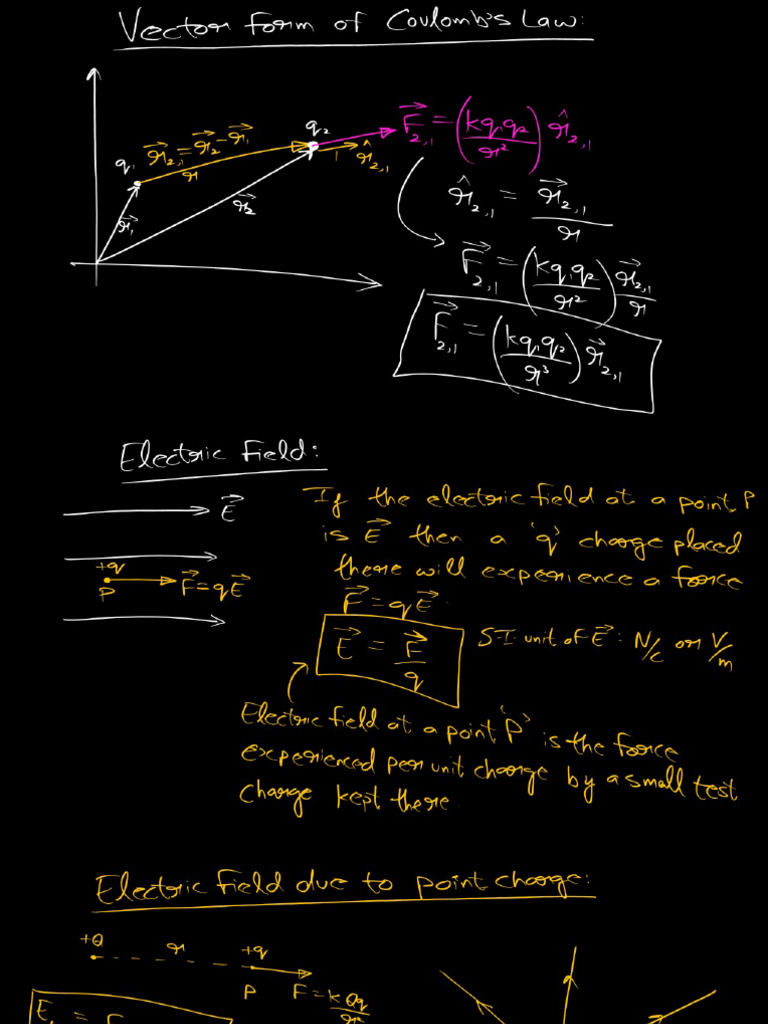 Vector form of Coulomb's Law:
q₁
r⃗₂,₁ = r⃗₂ - r⃗₁
r
q₂
1
r̂₂,₁
r⃗₁
r⃗₂
F⃗₂,₁ = (kq₁q₂/r²) r̂₂,₁
r̂₂,₁ = r⃗₂,₁/r
F⃗₂,₁ = (kq₁q₂/r²) r⃗₂,₁/r
F⃗₂,₁ = (kq₁q₂/r³) r⃗₂,₁
Electric Field:
E⃗
+q
P
F⃗=qE⃗
If the electric field at a point P
is E⃗ then a 'q' charge placed
there will experience a force
F⃗=qE⃗
E⃗ = F⃗/q
S.I. unit of E⃗: N/c or V/m
Electric field at a point 'P' is the force
experienced per unit charge by a small test
charge kept there.
Electric Field due to point charge:
+Q
r
+q
P
F=kQq/r²